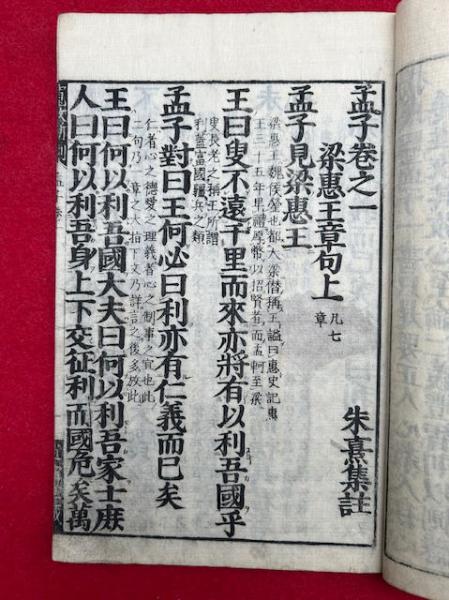 孟子卷之一
朱熹集註
梁惠王章句上 凡七章
孟子見梁惠王
梁惠王魏侯罃也都大梁僭稱王謚曰惠史記惠
王三十五年卑禮厚幣以招賢者而孟軻至梁
王曰叟不遠千里而來亦將有以利吾國乎
叟長老之稱王所謂
利蓋富國彊兵之類
孟子對曰王何必曰利亦有仁義而已矣
仁者心之德愛之理義者心之制事之宜也此
二句乃一章之大指下文乃詳言之後多放此
王曰何以利吾國大夫曰何以利吾家士庶
人曰何以利吾身上下交征利而國危矣萬